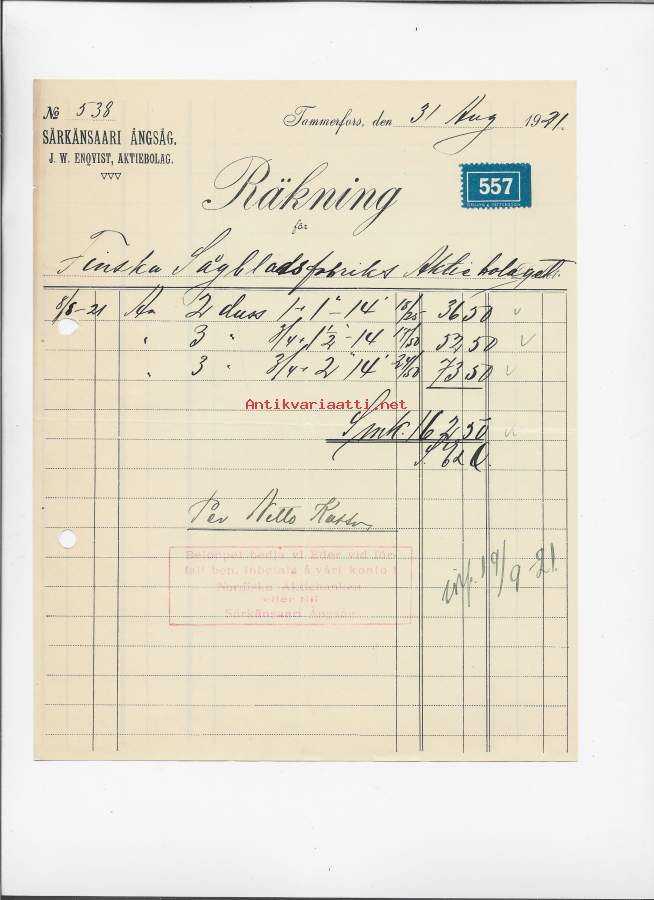 No 538
Tammerfors, den 31 Aug 1921.
SÄRKÄNSAARI ÅNGSÅG,
J. W. ENQVIST, AKTIEBOLAG.
557
Räkning
för
Finska Sågbladsfabriks Aktiebolaget.
8/8-21 2 duss 1 + 1" - 14' 18/25 - 36 50
" 3 " 3/4 + 1 1/2" - 14 17/50 52 50
" 3 " 3/4 + 2" 14' 24/50 73 50
Antikvariaatti.net
Smk. 162.50
Per Netto Kassa
Beloppet bedja vi Eder vid för-
fall ben. inbetala å vårt konto i
Nordiska Aktiebanken
eller till
Särkänsaari Ångsåg
19/9-21.